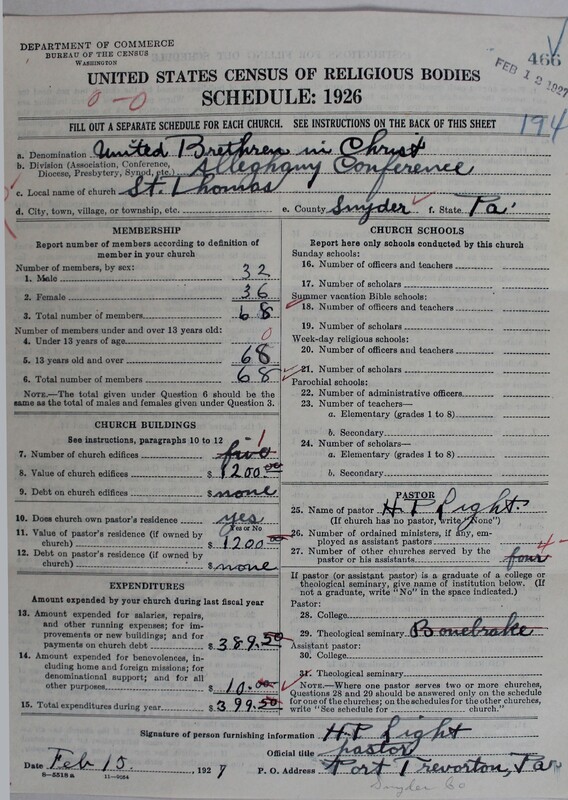 DEPARTMENT OF COMMERCE
BUREAU OF THE CENSUS
WASHINGTON
466
FEB 12 1927
UNITED STATES CENSUS OF RELIGIOUS BODIES
SCHEDULE: 1926
0-0
FILL OUT A SEPARATE SCHEDULE FOR EACH CHURCH. SEE INSTRUCTIONS ON THE BACK OF THIS SHEET
194
a. Denomination United Brethren in Christ
b. Division (Association, Conference, Diocese, Presbytery, Synod, etc.) Alleghany Conference
c. Local name of church St. Thomas
d. City, town, village, or township, etc. e. County Snyder f. State Pa
MEMBERSHIP
Report number of members according to definition of
member in your church
Number of members, by sex:
1. Male 32
2. Female 36
3. Total number of members 68
Number of members under and over 13 years old:
4. Under 13 years of age 0
5. 13 years old and over 68
6. Total number of members 68
NOTE.—The total given under Question 6 should be
same as the total of males and females given under Question 3.
CHURCH BUILDINGS
See instructions, paragraphs 10 to 12
7. Number of church edifices five 1
8. Value of church edifices $ 1200.00
9. Debt on church edifices $ none
10. Does church own pastor's residence yes
Yes or No
11. Value of pastor's residence (if owned by
church) $ 1200.00
12. Debt on pastor's residence (if owned by
church) $ none
EXPENDITURES
Amount expended by your church during last fiscal year
13. Amount expended for salaries, repairs,
and other running expenses; for im-
provements or new buildings; and for
payments on church debt $ 389.50
14. Amount expended for benevolences,
including home and foreign missions; for
denominational support; and for all
other purposes $ 10.00
15. Total expenditures during year $ 399.50
CHURCH SCHOOLS
Report here only schools conducted by this church
Sunday schools:
16. Number of officers and teachers
17. Number of scholars
Summer vacation Bible schools:
18. Number of officers and teachers
19. Number of scholars
Week-day religious schools:
20. Number of officers and teachers
21. Number of scholars
Parochial schools:
22. Number of administrative officers
23. Number of teachers—
a. Elementary (grades 1 to 8)
b. Secondary
24. Number of scholars—
a. Elementary (grades 1 to 8)
b. Secondary
PASTOR
25. Name of pastor H. P. Light.
(If church has no pastor, write "None")
26. Number of ordained ministers, if any, em-
ployed as assistant pastors
27. Number of other churches served by the
pastor or his assistants four 4-
If pastor (or assistant pastor) is a graduate of a college or
theological seminary, give name of institution below. (If
not a graduate, write "No" in the space indicated.)
Pastor:
28. College
29. Theological seminary Bonebrake
Assistant pastor:
30. College
31. Theological seminary
NOTE.—Where one pastor serves two or more churches,
Questions 28 and 29 should be answered only on the schedule
for one of the churches; on the schedules for the other churches,
write "See schedule for church."
Signature of person furnishing information H. P. Light
Official title pastor
Date Feb 15. 1927 P. O. Address Port Trevorton, Pa
8-5518a 11-9054 Snyder Co